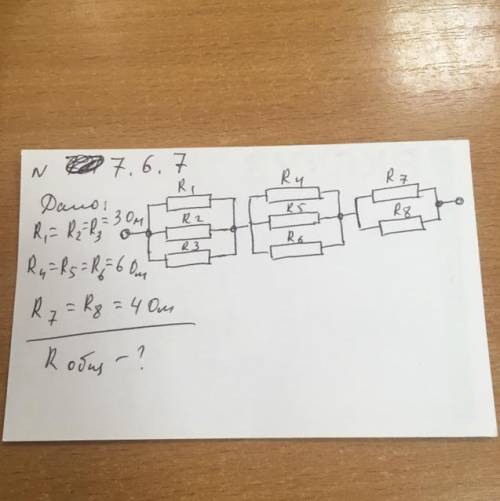 N 7.6.7
Дано:
R₁ = R₂ = R₃ = 3 Ом
R₄ = R₅ = R₆ = 6 Ом
R₇ = R₈ = 4 Ом
R общ – ?
R₁
R₂
R₃
R₄
R₅
R₆
R₇
R₈